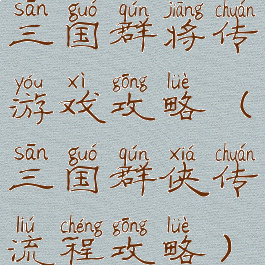 sān guó qún jiāng chuán
三国群将传
yóu xì gōng lüè
游戏攻略（
sān guó qún xiá chuán
三国群侠传
liú chéng gōng lüè
流程攻略）